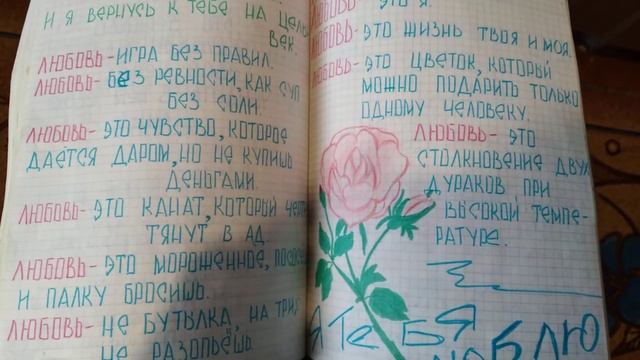 И Я ВЕРНУСЬ К ТЕБЕ НА ЦЕЛЫЙ
ВЕК.
ЛЮБОВЬ-ИГРА БЕЗ ПРАВИЛ.
ЛЮБОВЬ- БЕЗ РЕВНОСТИ, КАК СУП
БЕЗ СОЛИ.
ЛЮБОВЬ- ЭТО ЧУВСТВО, КОТОРОЕ
ДАЁТСЯ ДАРОМ, НО НЕ КУПИШЬ
ДЕНЬГАМИ.
ЛЮБОВЬ- ЭТО КАНАТ, КОТОРЫЙ
ТЯНУТ В АД.
ЛЮБОВЬ- ЭТО МОРОЖЕННОЕ,
И ПАЛКУ БРОСИШЬ.
ЛЮБОВЬ- НЕ БУТЫЛКА, НА
НЕ РАЗОПЬЁШЬ.
ЛЮБОВЬ- ЭТО Я.
ЛЮБОВЬ- ЭТО ЖИЗНЬ ТВОЯ И МОЯ.
ЛЮБОВЬ- ЭТО ЦВЕТОК, КОТОРЫЙ
МОЖНО ПОДАРИТЬ ТОЛЬКО
ОДНОМУ ЧЕЛОВЕКУ.
ЛЮБОВЬ- ЭТО
СТОЛКНОВЕНИЕ ДВУХ
ДУРАКОВ ПРИ
ВЫСОКОЙ ТЕМПЕ-
РАТУРЕ.
Я ТЕБЯ
ЛЮБЛЮ